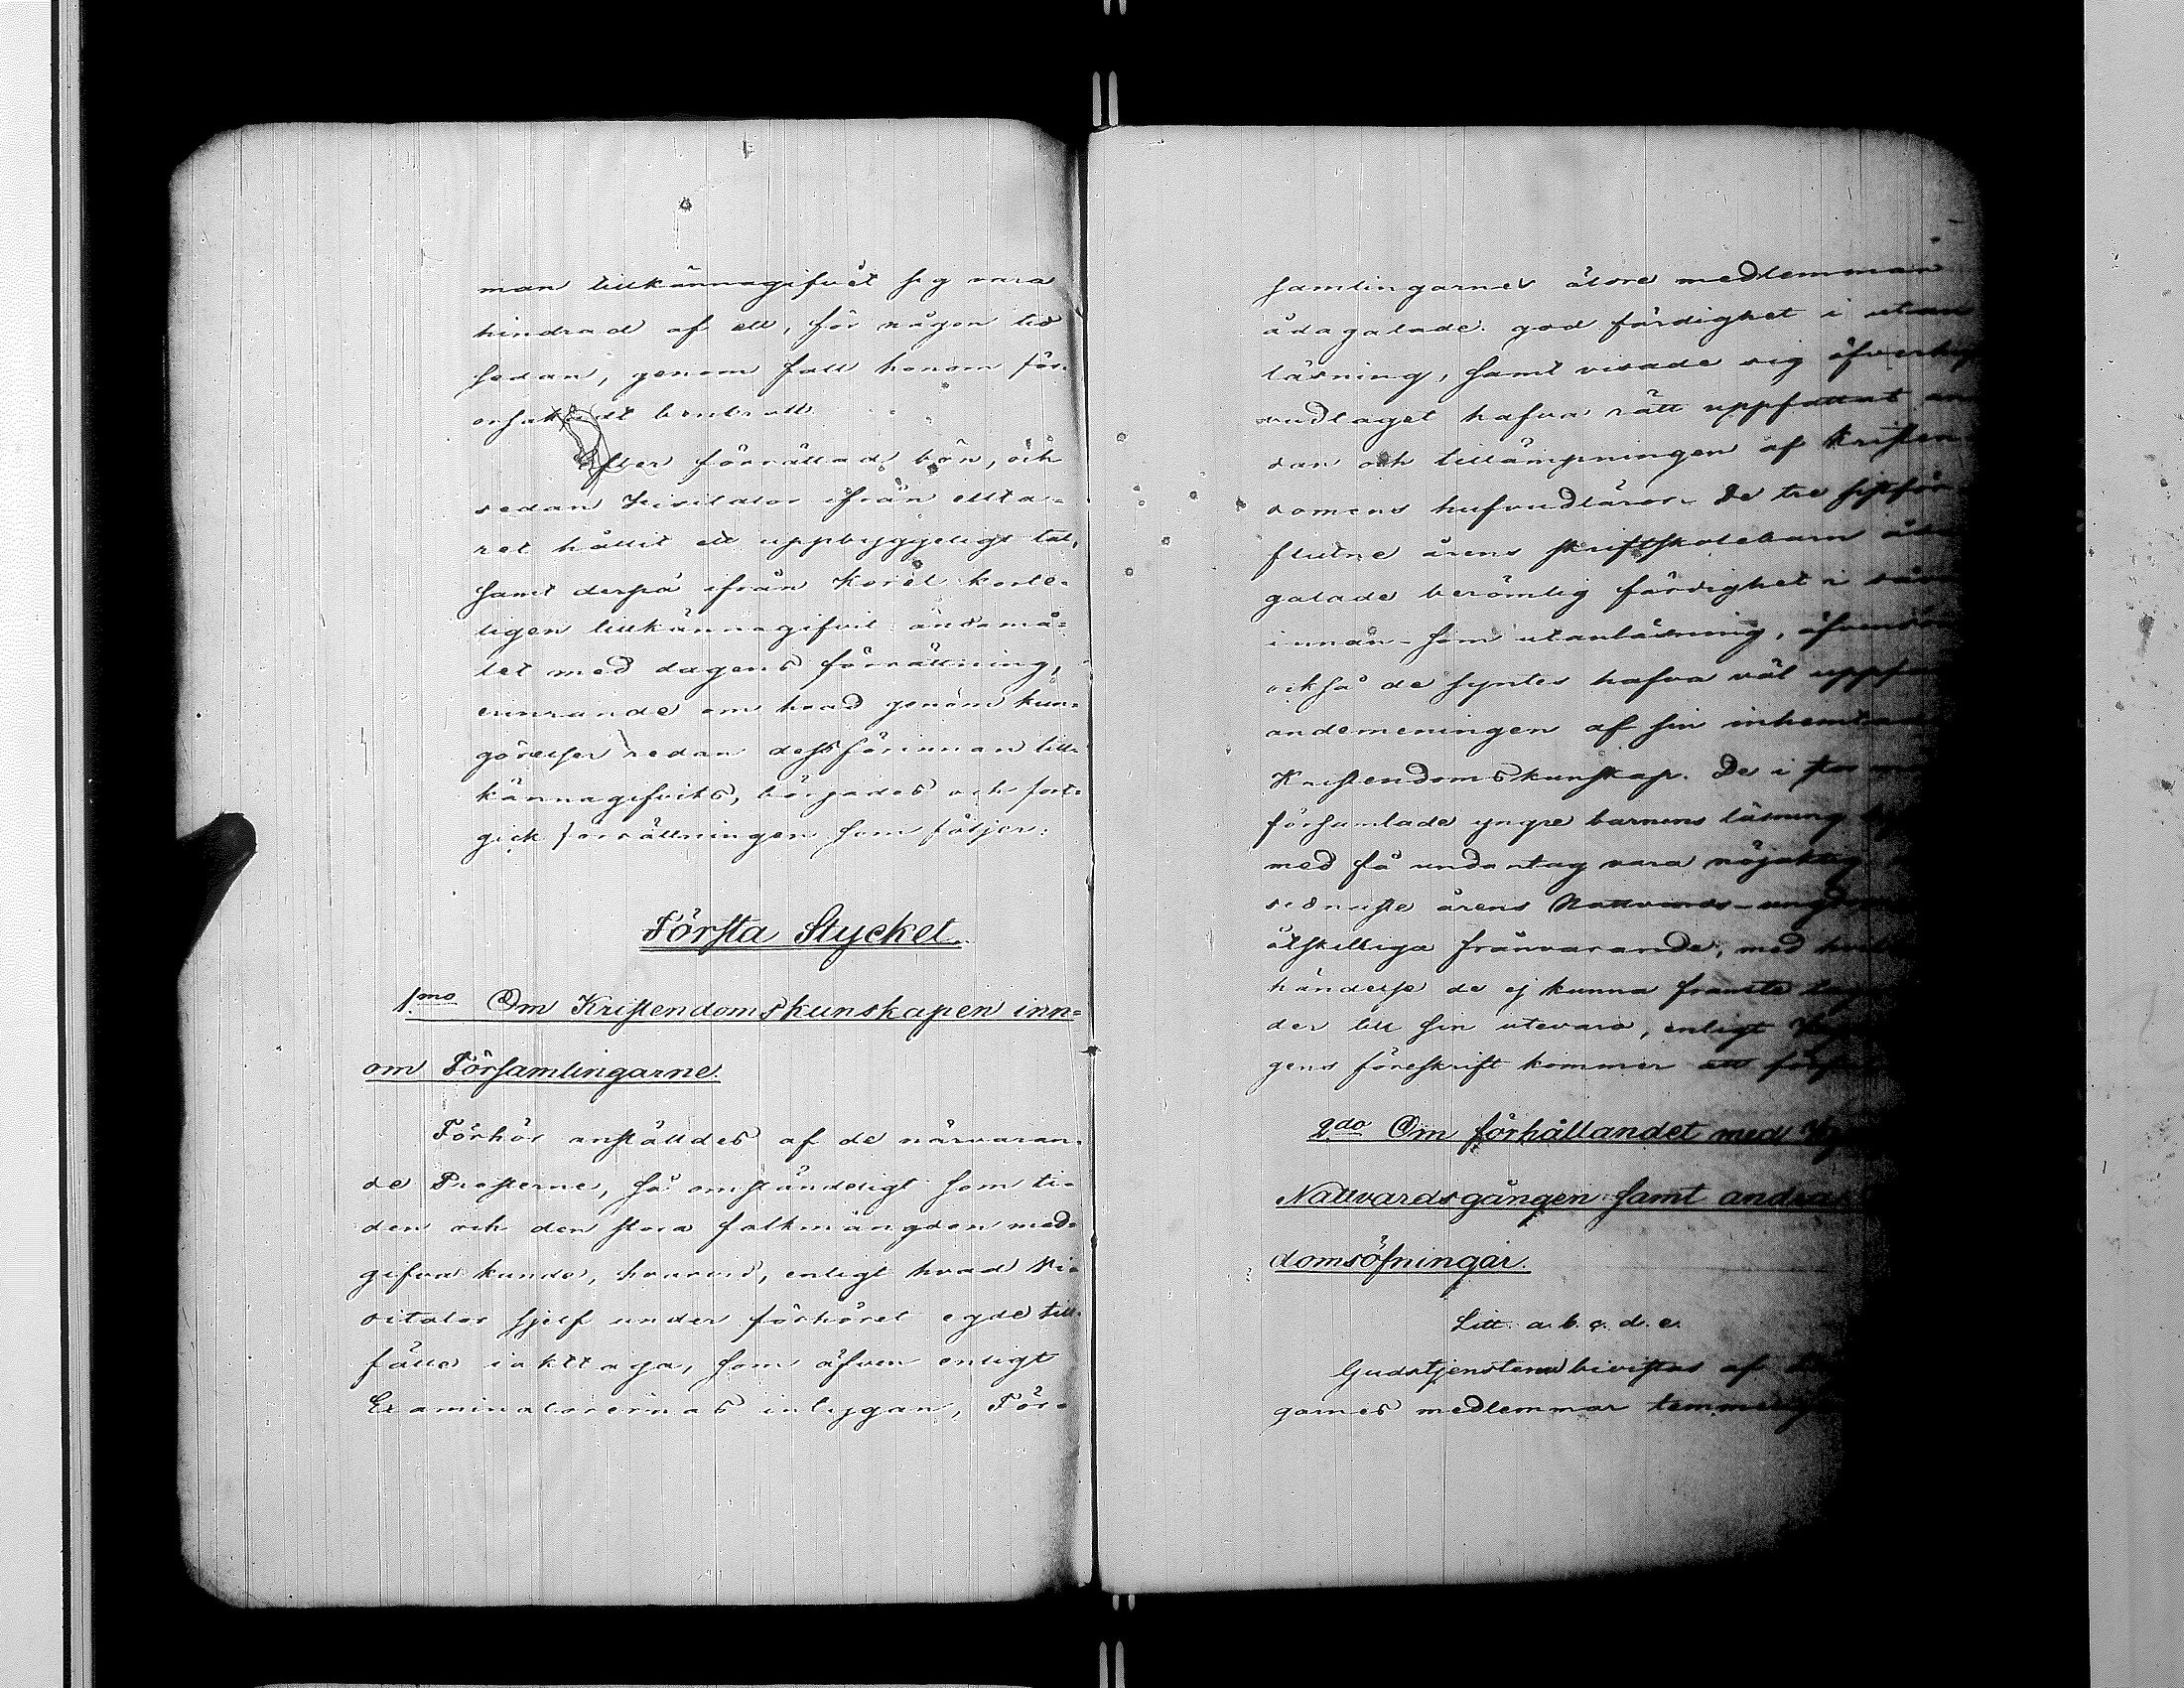 man tillkännagifvit sig vara
hindrad af ett, för någon tid
sedan, genom fall honom för-
orsakadt benbrott.
Efter förrättad bön, och
sedan Visitator ifrån alta-
ret hållit ett uppbyggeligt tal,
samt derpå ifrån Koret korte-
ligen tillkännagifvit ändamå-
let med dagens förrättning,
erinrande om hvad genom kun-
görelser redan dessförinnan till-
kännagifvits, börjades och fort-
gick förrättningen som följer:
Första Stycket.
1.mo Om Kristendomskunskapen inn-
om Församlingarne.
Förhör anställdes af de närvaran-
de Presterne, så omständeligt som ti-
den och den stora folkmängden med-
gifva kunde, hvarvid, enligt hvad Vi-
sitator sjelf under förhöret egde till-
fälle iakttaga, som äfven enligt
Examinatorernas intygan, För-
samlingarnes äldre medlemmar
ådagalade god färdighet i utan-
läsning, samt visade sig öfver
hudtaget hafva rätt uppfattat an-
dan och tillämpningen af Kristen-
domens hufvudläror. De tre sistför-
flutne årens skriftskolebarn åda-
galade berömlig färdighet i såväl
innan- som utanläsning, äfvensom
också de syntes hafva väl
andemeningen af sin inhemtade
Kristendomskunskap. De i
församlade yngre barnens läsning
med få undantag vara nöjaktig.
sednaste årens Nattvards-ungdom
åtskilliga frånvarande, med
händelse de ej kunna framte
der till sin utevaro, enligt
gens föreskrift kommer att
2.do Om förhållandet med
Nattvardsgången samt andra
domsöfningar.
Litt. a. b. c. d. e.
Gudstjensten bivistas af
garnes medlemmar temmeligen